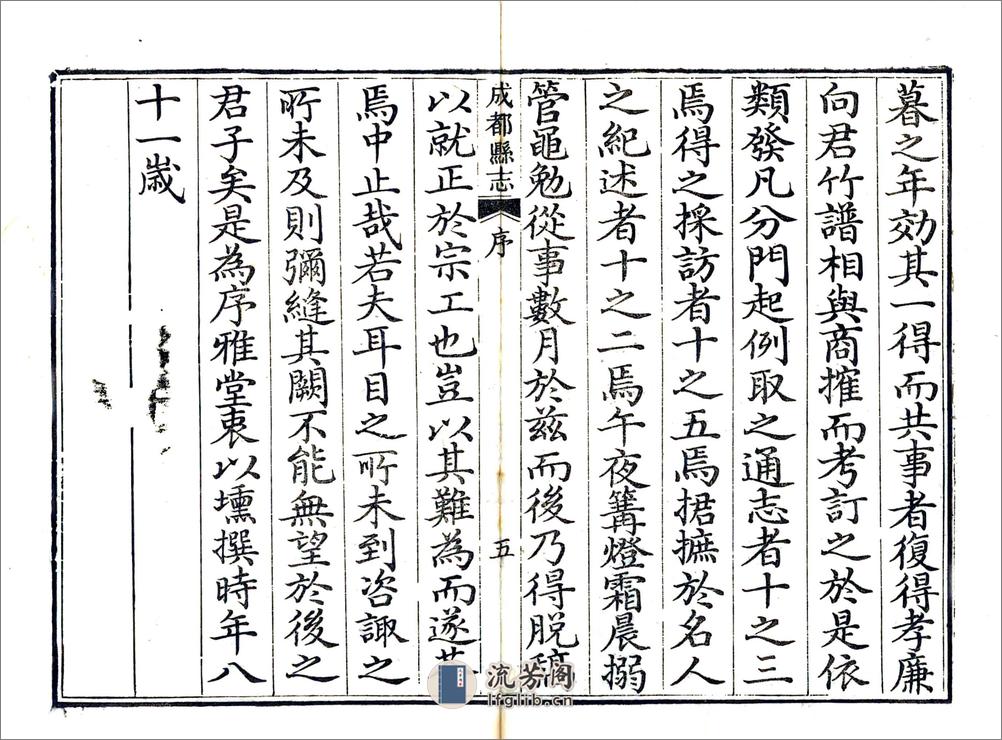 暮之年效其一得而共事者復得孝廉
向君竹譜相與商搉而考訂之於是依
類發凡分門起例取之通志者十之三
焉得之採訪者十之五焉据摭於名人
之紀述者十之二焉午夜篝燈霜晨搦
管黽勉從事數月於兹而後乃得脱稿
成都縣志 序 五
以就正於宗工也豈以其難為而遂
焉中止哉若夫耳目之所未到咨諏之
所未及則彌縫其闕不能無望於後之
君子矣是為序雅堂衷以壎撰時年八
十一歲
流芳阁
lfglib.cn